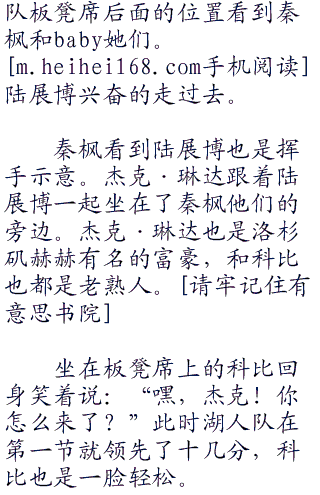 队板凳席后面的位置看到秦
枫和baby她们。
[m.heihei168.com手机阅读]
陆展博兴奋的走过去。
秦枫看到陆展博也是挥
手示意。杰克·琳达跟着陆
展博一起坐在了秦枫他们的
旁边。杰克·琳达也是洛杉
矶赫赫有名的富豪，和科比
也都是老熟人。[请牢记住有
意思书院]
坐在板凳席上的科比回
身笑着说：“嘿，杰克！你
怎么来了？”此时湖人队在
第一节就领先了十几分，科
比也是一脸轻松。